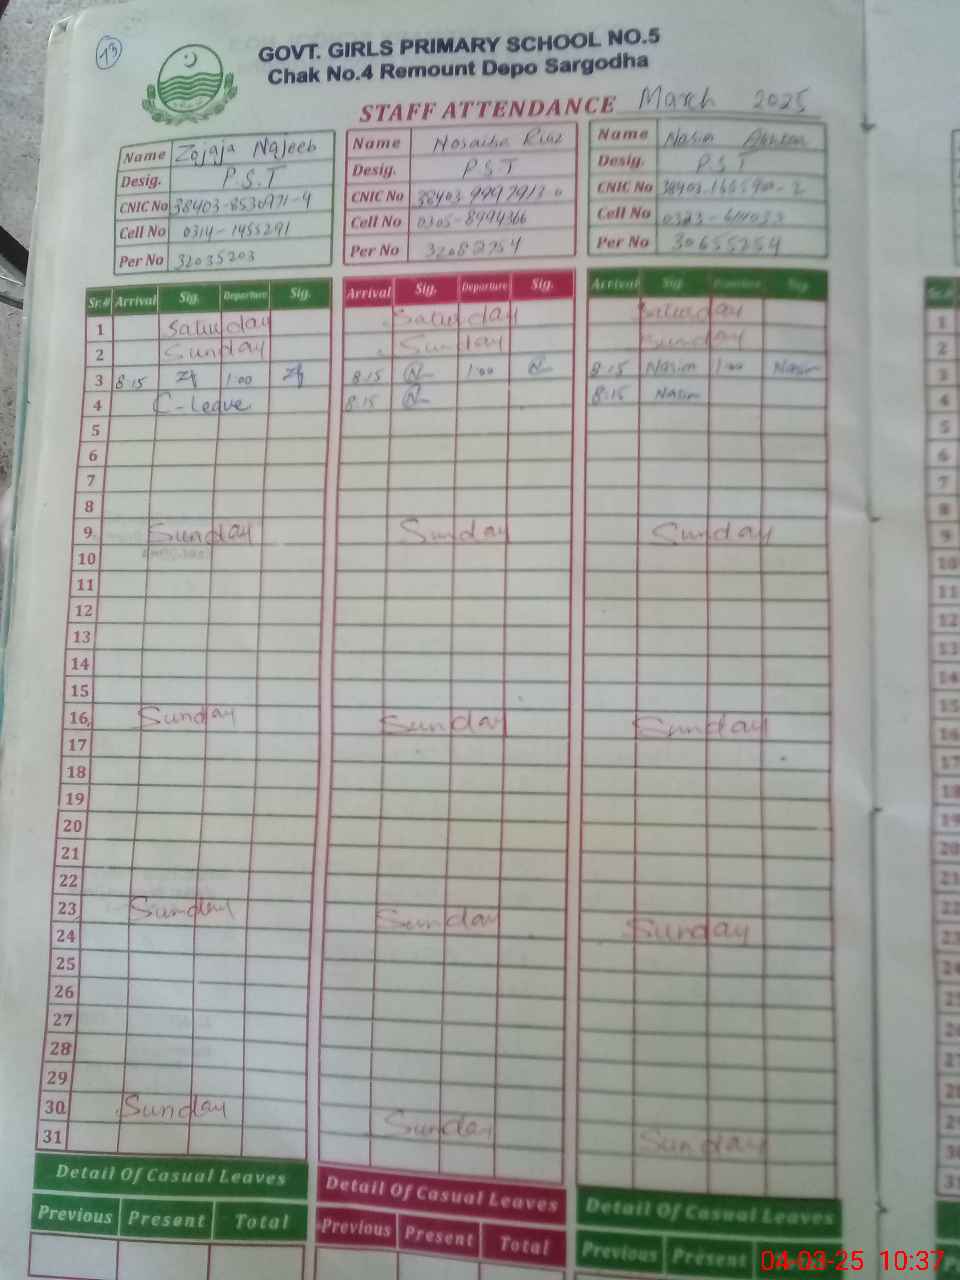 13
GOVT. GIRLS PRIMARY SCHOOL NO.5
Chak No.4 Remount Depo Sargodha
STAFF ATTENDANCE March 2025
Name Zajaja Najeeb
Desig. P.S.T
CNIC No 38403-8530971-4
Cell No 0314-1455291
Per No 32035203
Name Nosaiba Riaz
Desig. P.S.T
CNIC No
Cell No 0305-8994366
Per No 32082754
Name Nasim Akhtar
Desig. P.S.T
CNIC No
Cell No
Per No 30655254
Sr.# Arrival Sig. Departure Sig. Arrival Sig. Departure Sig. Arrival Sig. Departure Sig.
1 Saturday Saturday Saturday
2 Sunday Sunday Sunday
3 8:15 1:00 8:15 1:00 8:15 Nasim 1:00 Nasim
4 C-leave 8:15 8:15 Nasim
5
6
7
8
9 Sunday Sunday Sunday
10
11
12
13
14
15
16 Sunday Sunday Sunday
17
18
19
20
21
22
23 Sunday Sunday Sunday
24
25
26
27
28
29
30 Sunday Sunday Sunday
31
Detail Of Casual Leaves Detail Of Casual Leaves Detail Of Casual Leaves
Previous Present Total Previous Present Total Previous Present
04-03-25 10:37